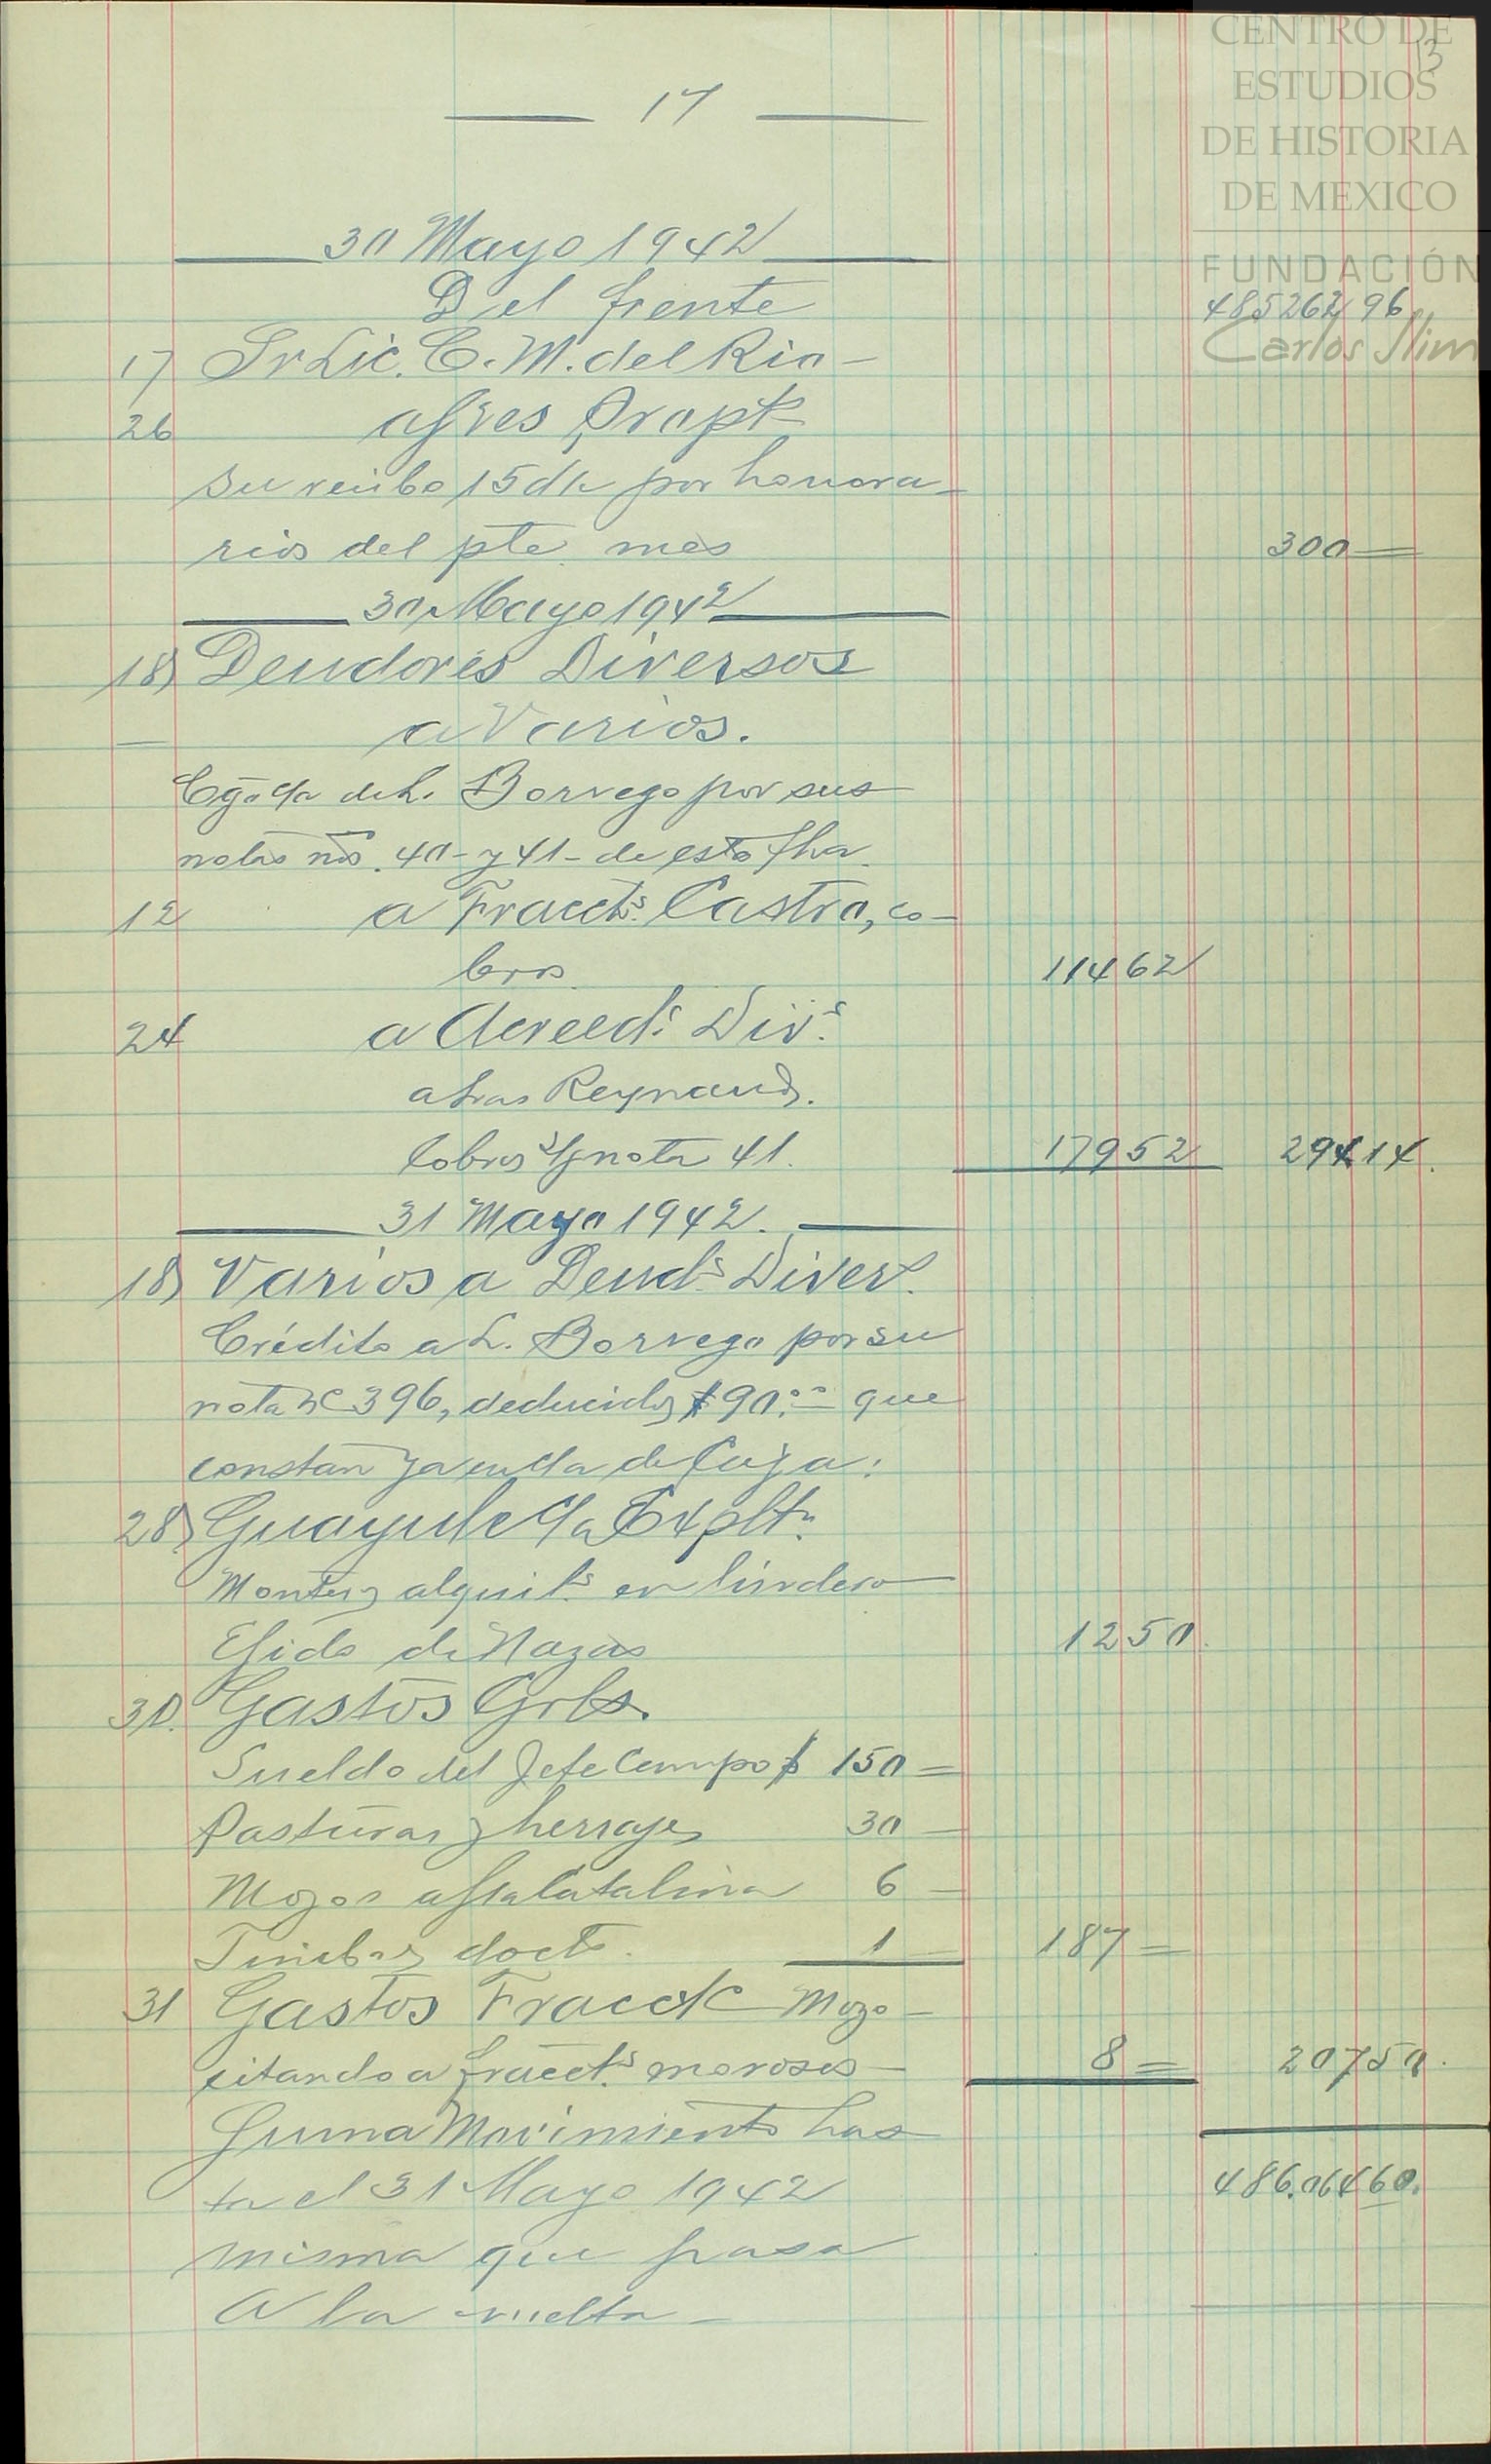 CENTRO DE
ESTUDIOS
DE HISTORIA
DE MEXICO
FUNDACIÓN
Carlos Slim
13
17
30 Mayo 1942
Del frente 485262 96
17 Sr Lic. C. M. del Rio
26 a Fres Propt
su recibo 15 d/c por honora-
rios del pte. mes 300 —
30 Mayo 1942
18 Deudores Diversos
— a Varios.
Cgo cta de L. Borrego por sus
notas nos. 40 - y 41 - de esta fha.
12 a Fraccts. Castro, co-
bros 114 62
24 a Acreeds. Divs.
a Reynaud.
Cobros s/ nota 41. 179 52 294 14.
31 Mayo 1942.
18 Varios a Deuds. Divers.
Crédito a L. Borrego por su
nota No 396, deducidos $90.00 que
constan ya en cta de Caja:
28 Guayule Cta Explt.
Montes y alquils. en lindero
Ejido de Nazas 12 50.
30. Gastos Grls.
Sueldo del Jefe Campo $ 150 =
Pasturas y herrajes 30 —
Mozos a Catalina 6 —
Timbres docts. 1 — 187 =
31 Gastos Fracct Mozo -
citando a fracts. morosos - 8 = 207 50.
Suma Movimiento has
ta el 31 Mayo 1942 486.064 60.
misma que pasa
A la vuelta -